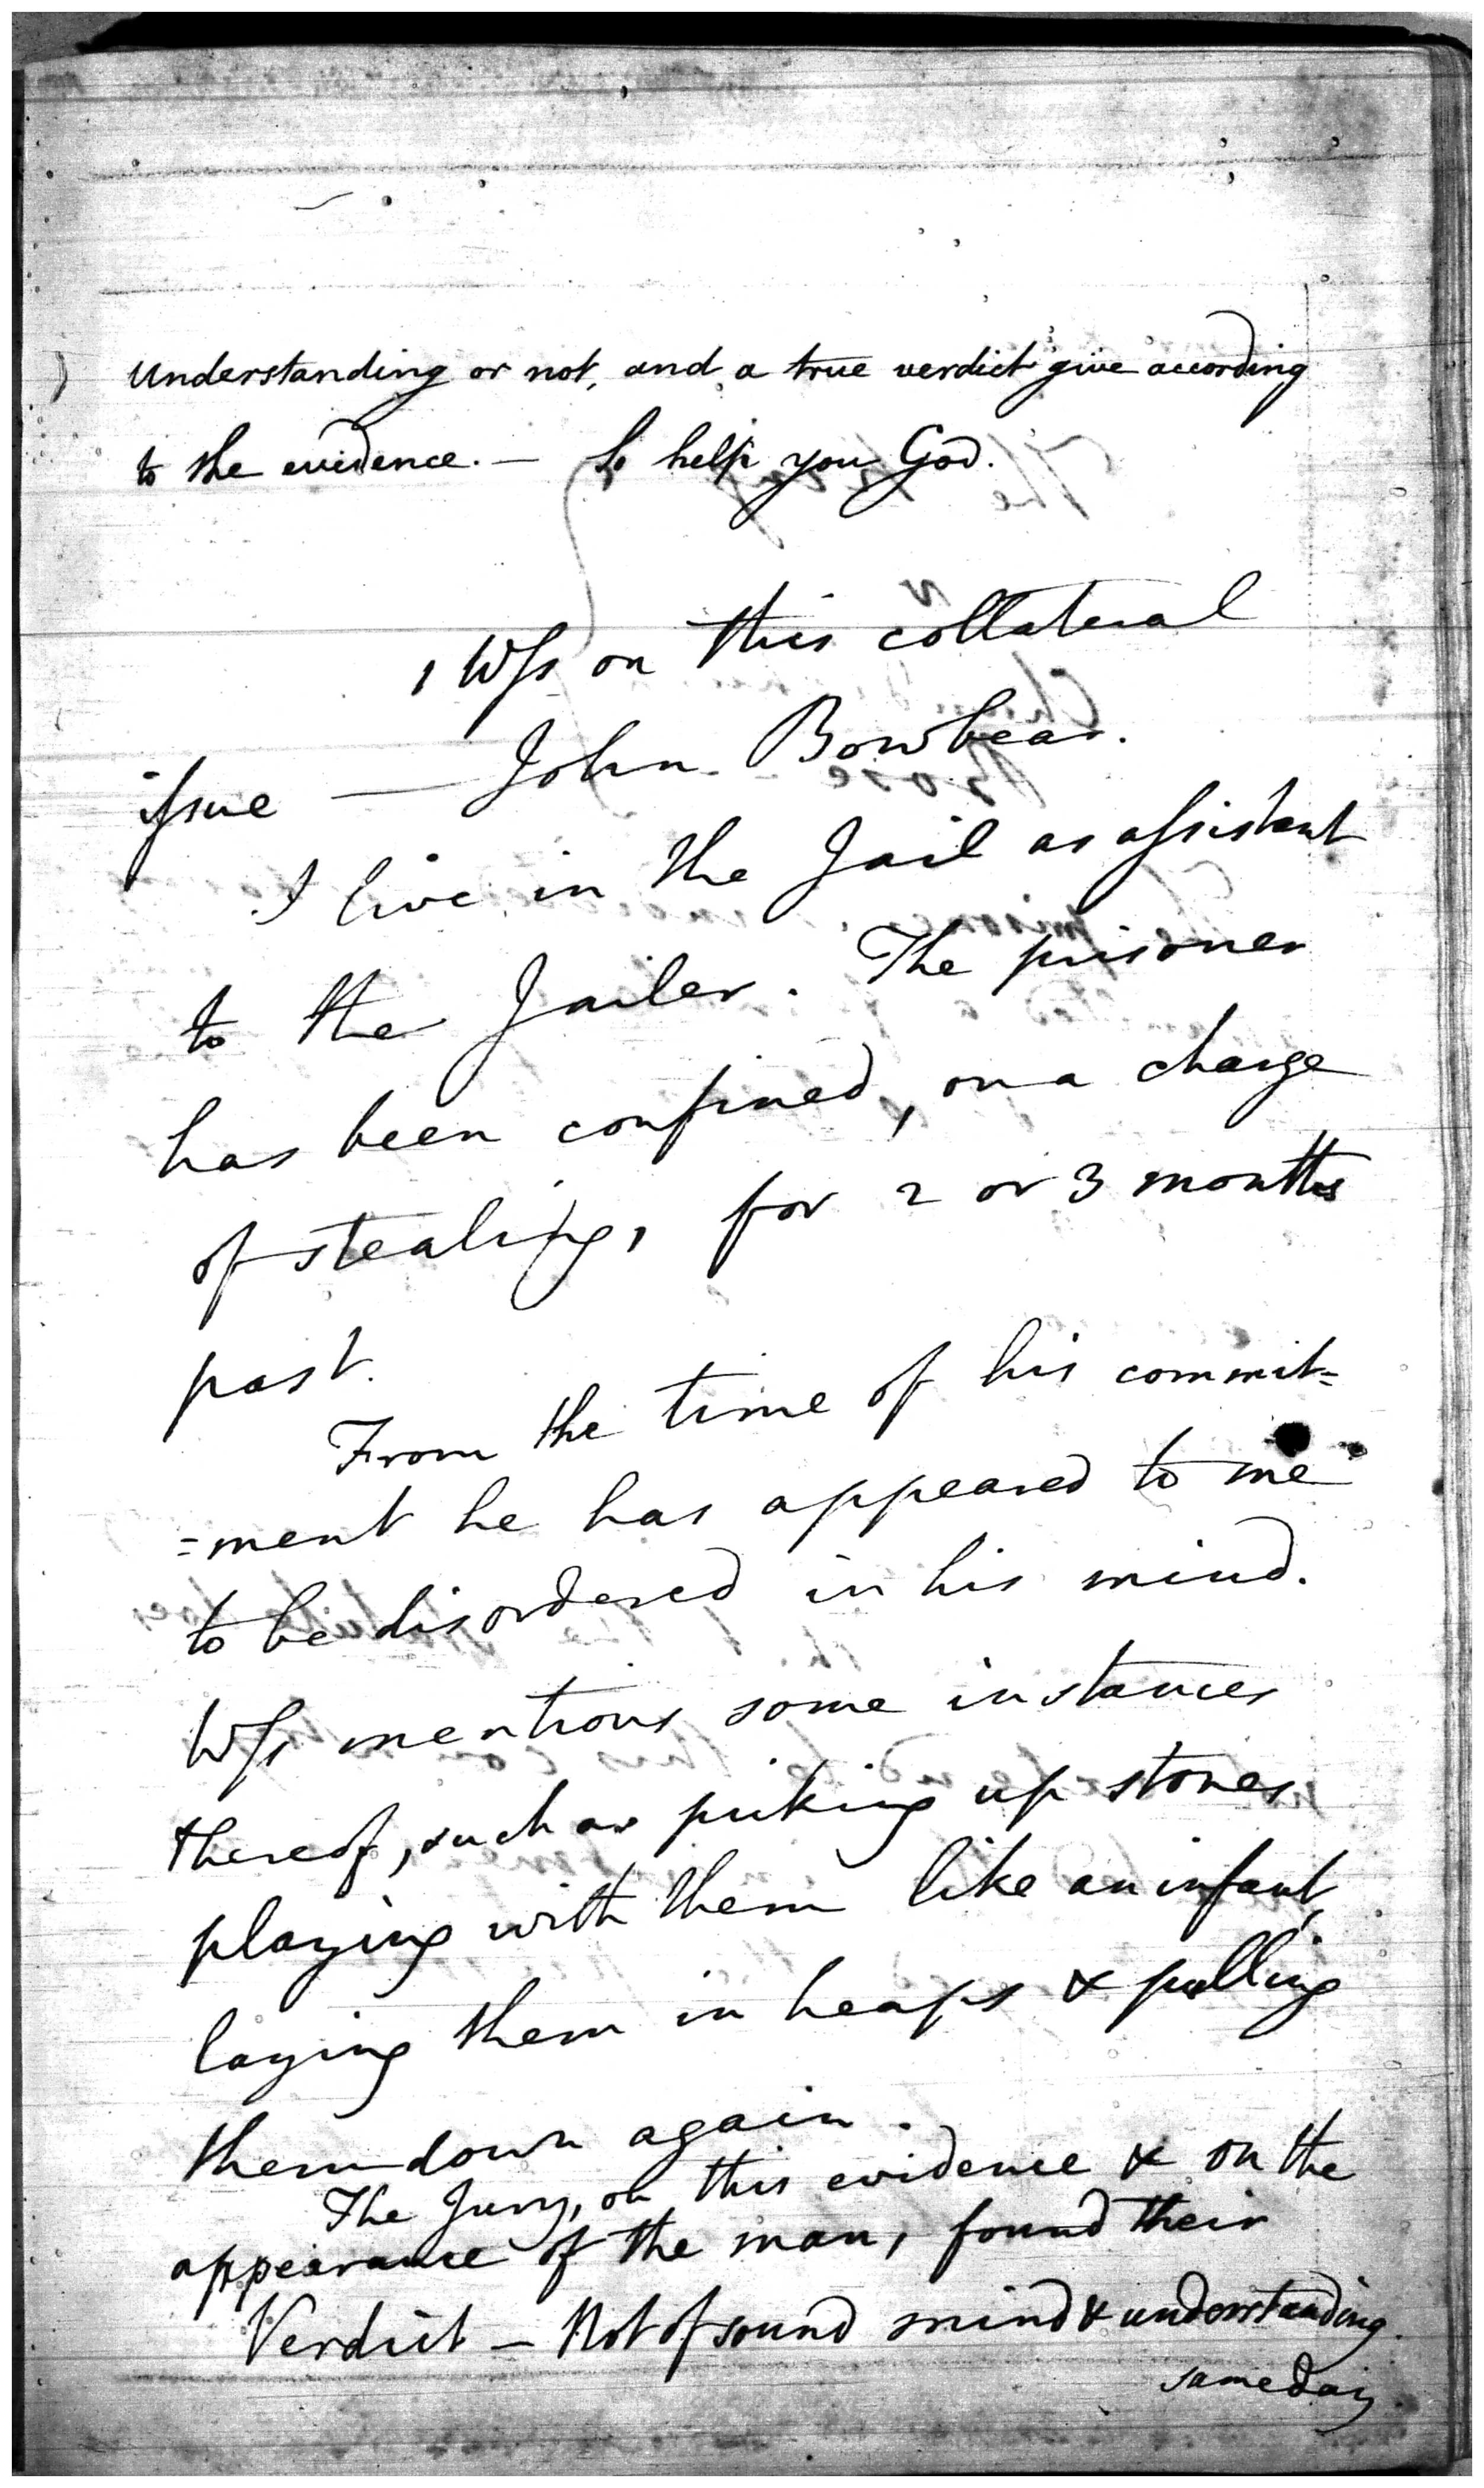 Understanding or not, and a true verdict give according
to the evidence. — So help you God.
1 Wſs on this collateral
iſsue — John Bowbear.
I live in the Jail as aſsistant
to the Jailer. The prisoner
has been confined, on a charge
of stealing, for 2 or 3 months
past.
From the time of his commit=
=ment he has appeared to me
to be disordered in his mind.
Wſs mentions some instances
thereof, such as picking up stones
playing with them like an infant,
laying them in heaps & pulling
them down again.
The Jury, on this evidence & on the
appearance of the man, found their
Verdict — Not of sound mind & understanding.
same day